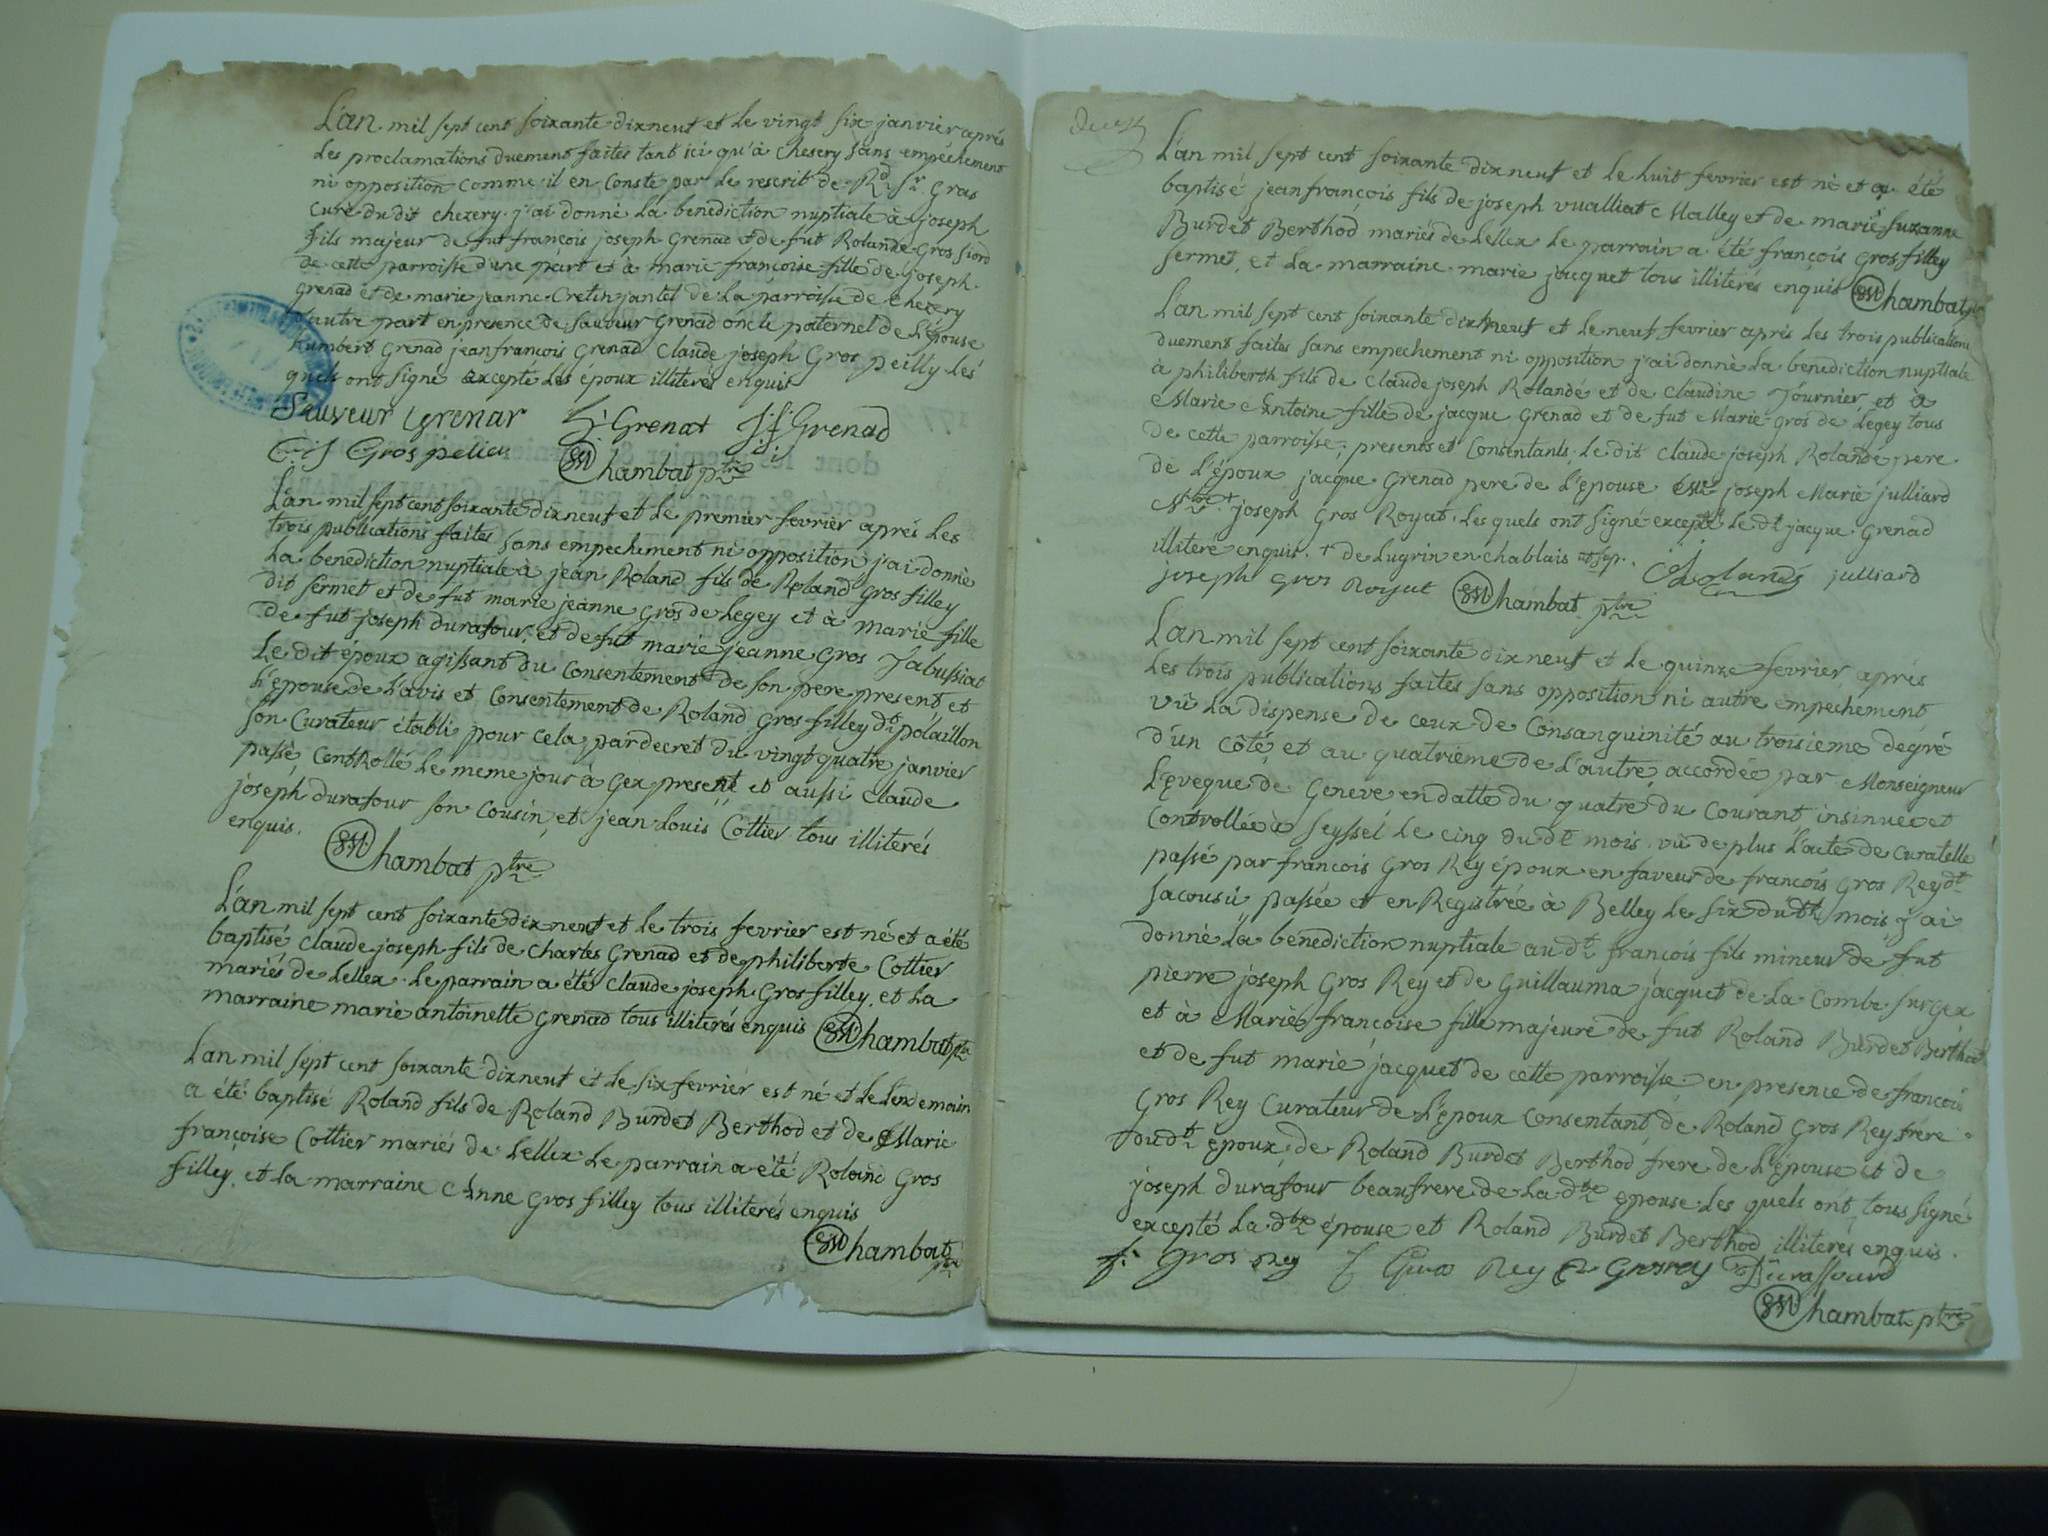 L'an mil sept cent soixante dixneuf et le vingt six janvier aprés
les proclamations duement faites tant ici qu'à chesery sans empéchement
ni opposition comme il en conste par le rescrit de Rd Sr. Gras
curé du dit chezery j'ai donné la benediction nuptiale à joseph
fils majeur de fut françois joseph Grenad et de fut Rolande Gros fiord
de cette parroisse d'une part et à marie françoise fille de joseph
Grenad et de marie jeanne Cretin jantel de la parroisse de chezery
d'autre part en presence de sauveur Grenad oncle paternel de l'épouse
humbert Grenad jeanfrancois Grenad Claude joseph Gros peilly les
quels ont signé excepté les époux illiterés enquis
Sauveur Grenar h. Grenat J. f. Grenad
C. j Gros pelieu Chambat ptre
L'an mil sept cent soixante dixneuf et le premier fevrier aprés les
trois publications faites sans empechement ni opposition j'ai donné
la benediction nuptiale à jean Roland fils de Roland Gros filley
dit sermet et de fut marie jeanne Gros de Legey et à marie fille
de fut joseph durafour, et de fut marie jeanne Gros Jabussiat
le dit époux agissant du consentement de son pere present et
l'épouse de l'avis et consentement de Roland Gros filley dt polaillon
son Curateur établi pour cela par decret du vingt quatre janvier
passé, Contrôllé le meme jour à Gex present et aussi Claude
joseph durafour son Cousin, et jean Louis Cottier tous illiterés
enquis. Chambat ptre
L'an mil sept cent soixante dixneuf et le trois fevrier est né et a été
baptisé claude joseph fils de Charles Grenad et de philiberte Cottier
mariés de Lellex. le parrain a été claude joseph Gros filley, et la
marraine marie antoinette Grenad tous illiterés enquis Chambat ptre
L'an mil sept cent soixante dixneuf et le six fevrier est né et le lendemain
a été baptisé Roland fils de Roland Burdet Berthod et de Marie
françoise Cottier mariés de Lellex le parrain a été Roland Gros
filley, et la marraine Anne Gros filley tous illiterés enquis
Chambat ptre
L'an mil sept cent soixante dixneuf et le huit fevrier est né et a été
baptisé jeanfrançois fils de joseph vualliat Malley et de marie suzanne
Burdet Berthod mariés de Lellex le parrain a été françois Gros filley
sermet, et la marraine marie jacquet tous illiterés enquis Chambat ptre
L'an mil sept cent soixante dixneuf et le neuf fevrier aprés les trois publications
duement faites sans empechement ni opposition j'ai donné la benediction nuptiale
à philiberth fils de Claude joseph Rolandé et de Claudine Tournier, et à
Marie Antoine fille de jacque Grenad et de fut Marie Gros de Legey tous
de cette parroisse; presents et Consentants. le dit claude joseph Rolandé pere
de l'époux jacque Grenad pere de l'épouse joseph Marie julliard
+ joseph Gros Royat. les quels ont signé excepté le dt jacque Grenad
illiteré enquis. + de Lugrin en chablais Rolandé julliard
joseph gros Royat Chambat ptre
L'an mil sept cent soixante dixneuf et le quinze fevrier, aprés
les trois publications faites sans opposition ni autre empechement
vû la dispense de ceux de Consanguinité au troisieme degré
d'un côté, et au quatrieme de l'autre accordée par Monseigneur
L'Eveque de Geneve en datte du quatre du courant insinuée et
controllée à Seyssel le cinq du dt mois. vû de plus l'acte de curatelle
passé par francois Gros Rey époux en faveur de françois Gros Rey dt
Jacousú passée et en Registrée à Belley le six du dt mois j'ai
donné la benediction nuptiale au dt françois fils mineur de fut
pierre joseph Gros Rey et de Guillauma jacquet de La Combe sur Gex
et à Marie françoise fille majeure de fut Roland Burdet Berthod
et de fut marie jacquet de cette parroisse en presence de francois
Gros Rey Curateur de l'époux consentant de Roland Gros Rey frere
du dt époux, de Roland Burdet Berthod frere de l'épouse et de
joseph durafour beaufrere de la dte epouse. les quels ont tous signé
excepté la dte épouse et Roland Burdet Berthod illiterés enquis.
f. Gros Rey f Gros Rey R Grosrey Durassourd
Chambat ptre